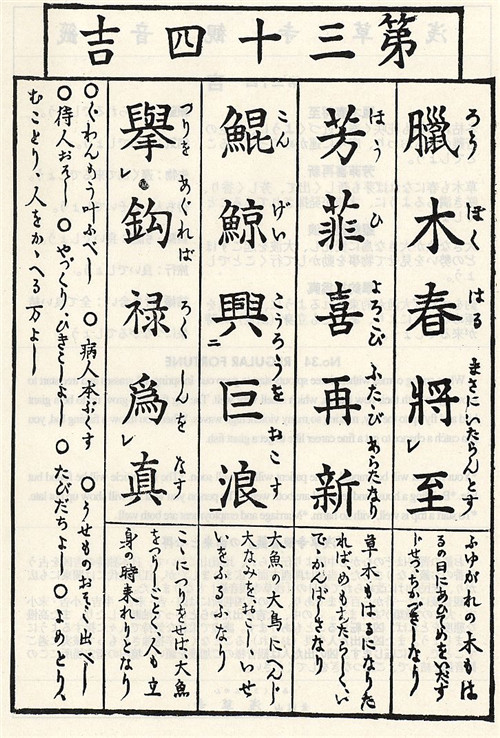 第三十四吉
臘木春將レ至
ろうぼくはるまさにいたらんとす
ふゆがれの木もは
るの日にあひてめをいだす
じせつちかづきしなり
芳菲喜再新
はうひよろこびふたゝびあらたなり
草木もはるになりた
れば、めもあたらしくい
でゝ、かんばしきなり
鯤鯨興二巨浪一
こんげいこうろうをおこす
大魚の大鳥にへんじ
大なみをおこしいせ
いをふるふなり
擧レ鈎禄爲レ真
つりをあぐればろくしんをなす
こゝにつりをせば、大魚
をつらんごとく人も立
身の時来れしとなり
○ぐわんもう叶ふべし ○病人本ぷくす ○うせものおそく出べし
○待人おそし ○やづくり、ひきこしよし ○たびだちよし ○よめとり、
むことり、人をかゝへる万よし